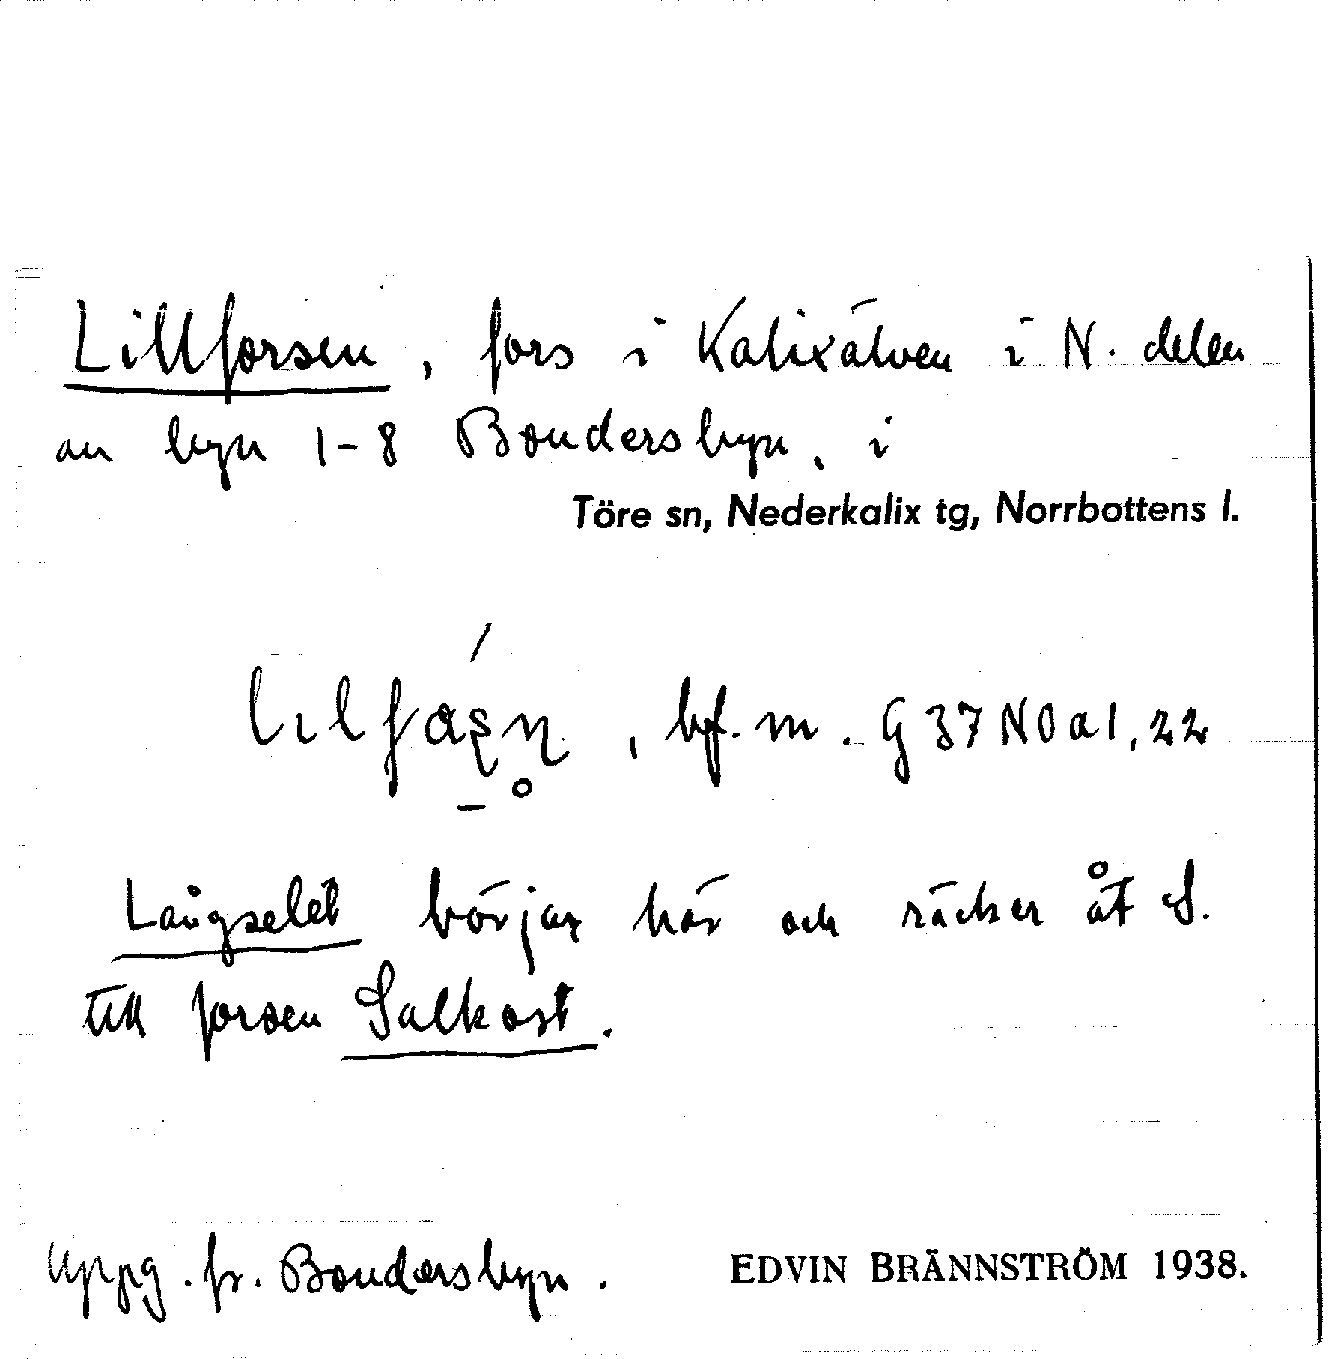 Lillforsen, fors i Kalixälven i N. delen
av byn 1-8 Bondersbyn, i
Töre sn, Nederkalix tg, Norrbottens l.
, bf. m. G 37 N O a 1, 22
Långselet börjar här och räcker åt S.
till forsen Salkost.
Uppg. fr. Bondersbyn.
EDVIN BRÄNNSTRÖM 1938.